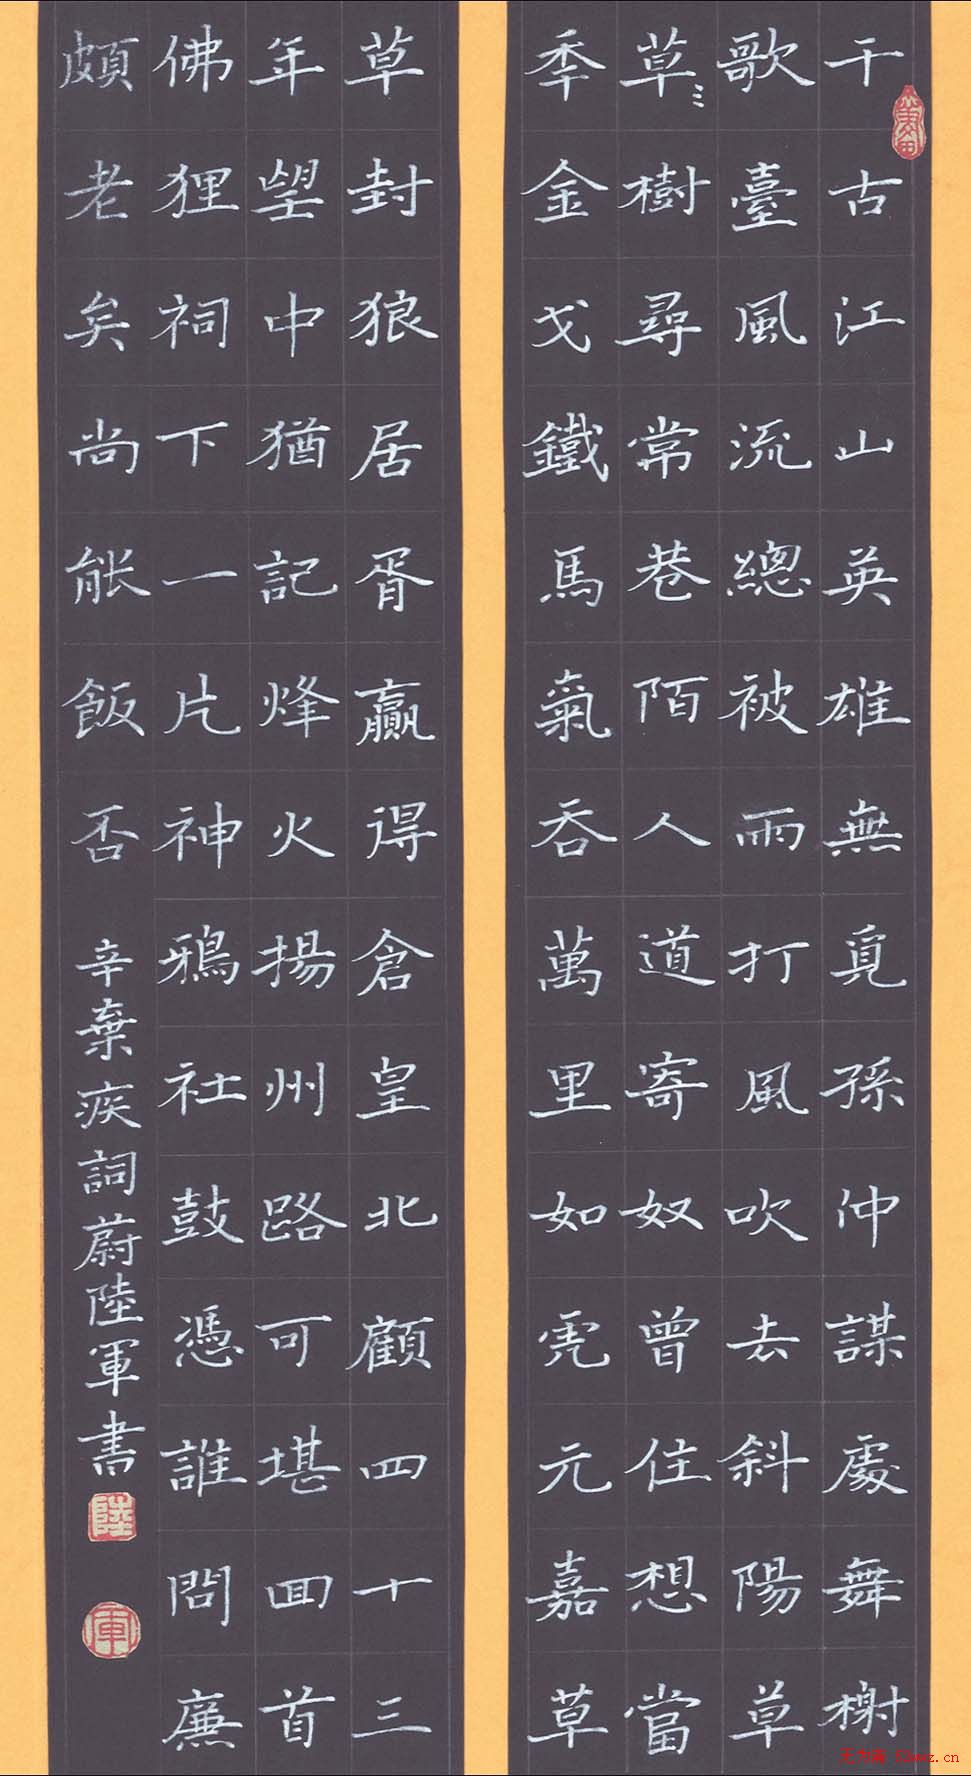 千古江山英雄無覓孫仲謀處舞榭
歌臺風流總被雨打風吹去斜陽草
草樹尋常巷陌人道寄奴曾住想當
秊金戈鐵馬氣吞萬里如虎元嘉草
草封狼居胥贏得倉皇北顧四十三
年望中猶記烽火揚州路可堪回首
佛狸祠下一片神鴉社鼓憑誰問廉
頗老矣尚能飯否 辛棄疾詞蔚陸軍書
陸
軍